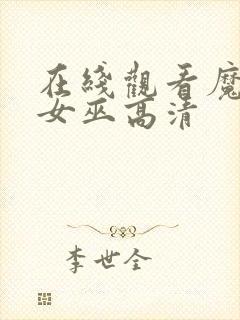 在綫觀看魔
女巫高清
李世全